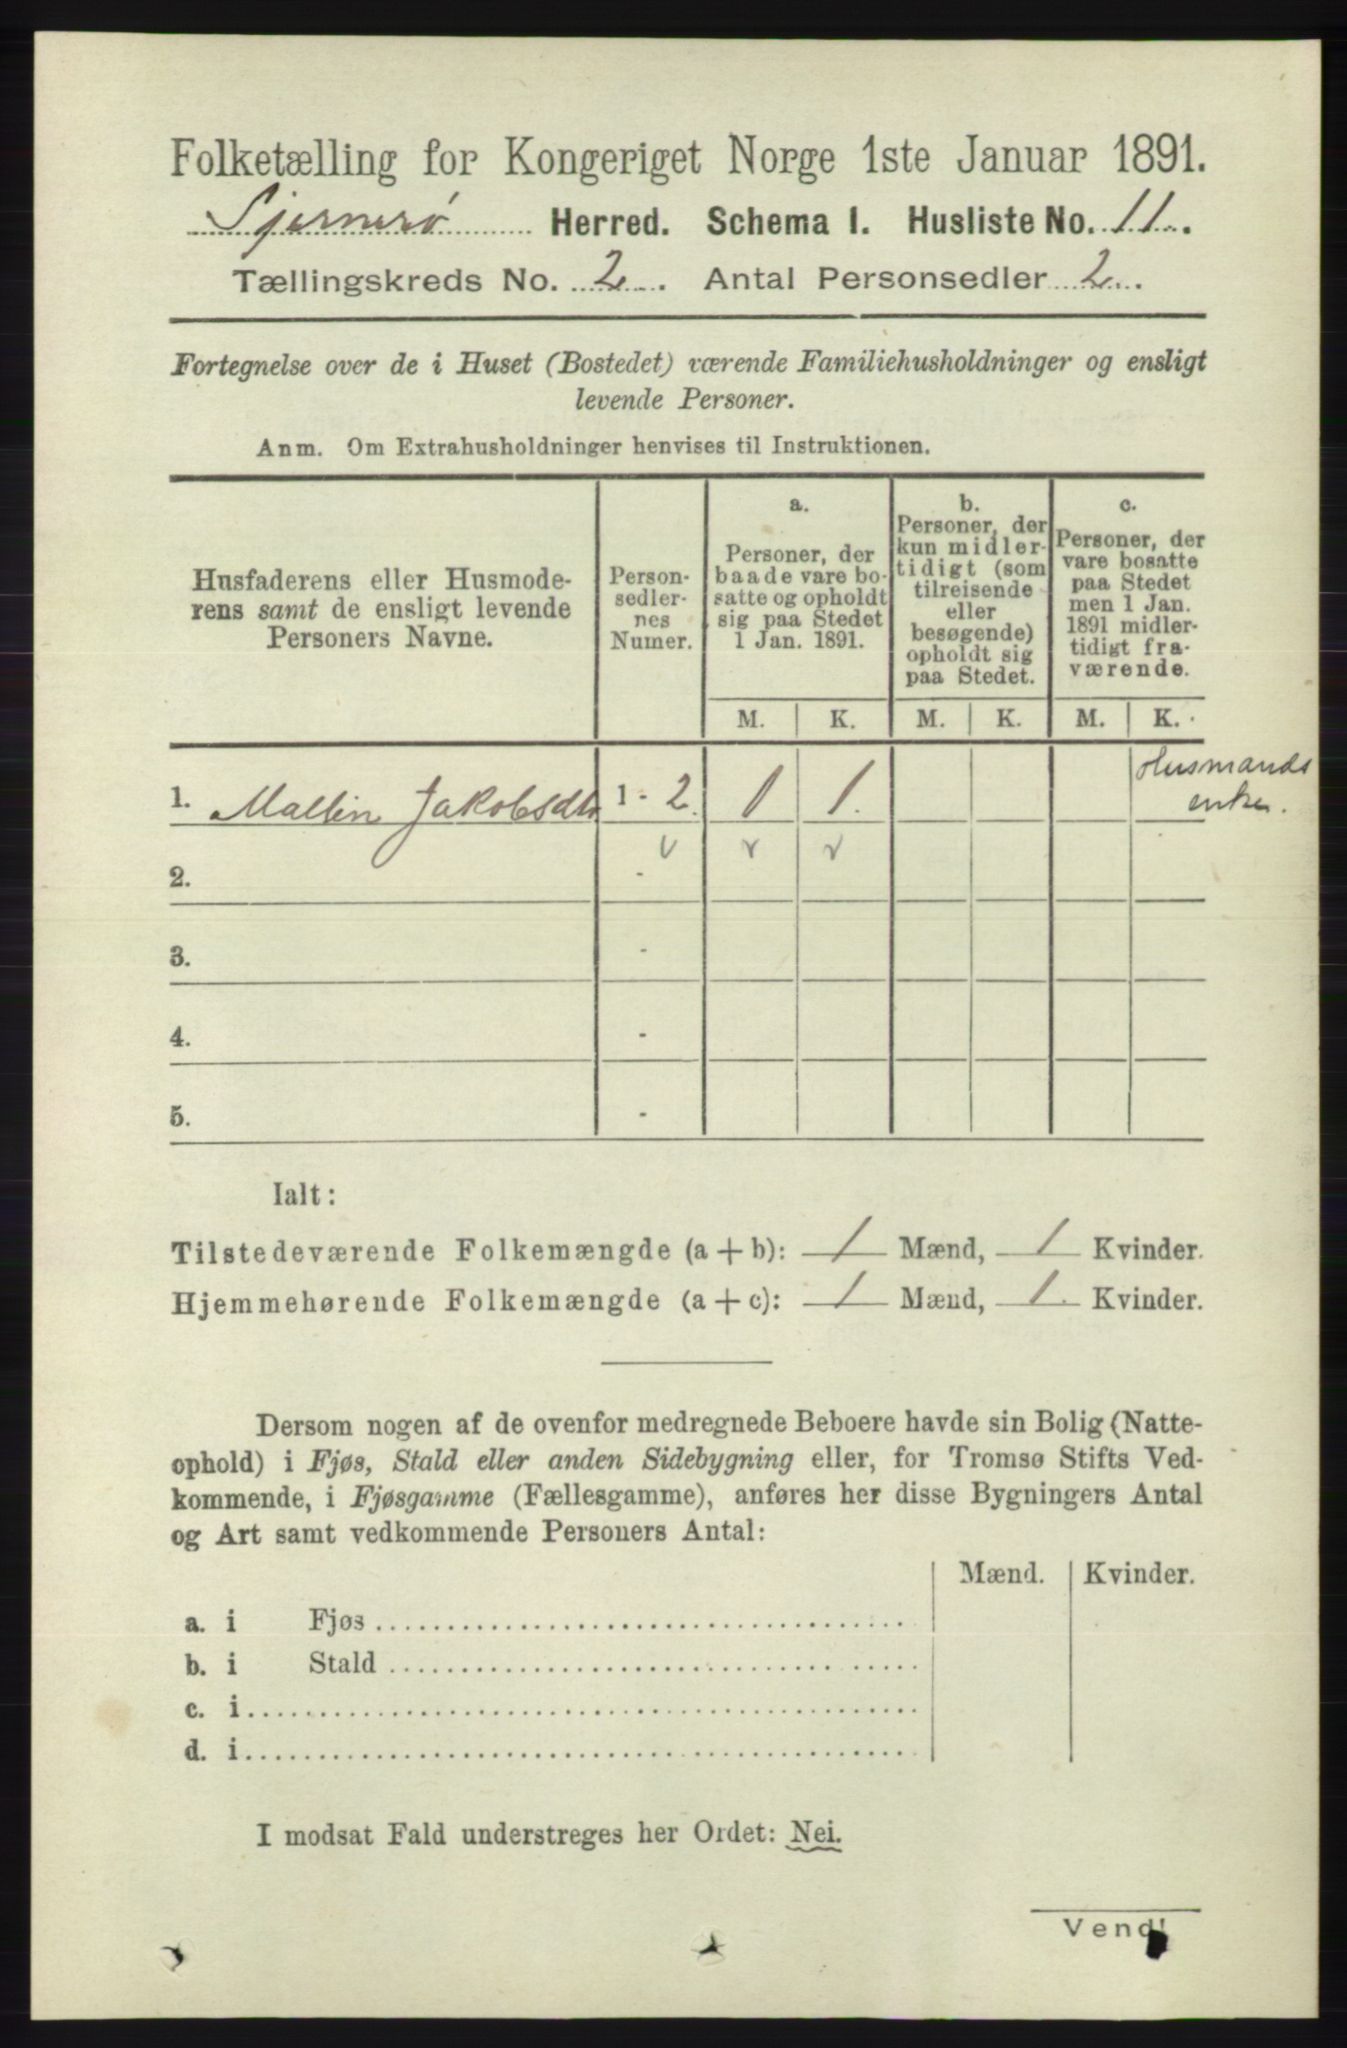 Folketælling for Kongeriget Norge 1ste Januar 1891.
Sjernerø Herred. Schema I. Husliste No. 11.
Tællingskreds No. 2. Antal Personsedler 2.
Fortegnelse over de i Huset (Bostedet) værende Familiehusholdninger og ensligt
levende Personer.
Anm. Om Extrahusholdninger henvises til Instruktionen.
Husfaderens eller Husmode-
rens samt de ensligt levende
Personers Navne.
Person-
sedler-
nes
Numer.
a.
Personer, der
baade vare bo-
satte og opholdt
sig paa Stedet
1 Jan. 1891.
b.
Personer, der
kun midler-
tidigt (som
tilreisende
eller
besøgende)
opholdt sig
paa Stedet.
c.
Personer, der
vare bosatte
paa Stedet
men 1 Jan.
1891 midler-
tidigt fra-
værende.
M. K. M. K. M. K.
1. Mallin Jakobsdtr 1 - 2. 1 1. Husmands
enke.
2. -
3. -
4. -
5. -
Ialt:
Tilstedeværende Folkemængde (a + b): 1 Mænd, 1 Kvinder.
Hjemmehørende Folkemængde (a + c): 1 Mænd, 1. Kvinder.
Dersom nogen af de ovenfor medregnede Beboere havde sin Bolig (Natte-
ophold) i Fjøs, Stald eller anden Sidebygning eller, for Tromsø Stifts Ved-
kommende, i Fjøsgamme (Fællesgamme), anføres her disse Bygningers Antal
og Art samt vedkommende Personers Antal:
Mænd. Kvinder.
a. i Fjøs
b. i Stald
c. i
d. i
I modsat Fald understreges her Ordet: Nei.
Vend!